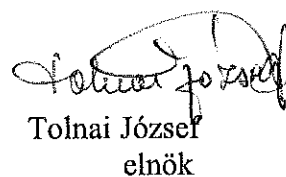 Tolnai József
Tolnai József
elnök